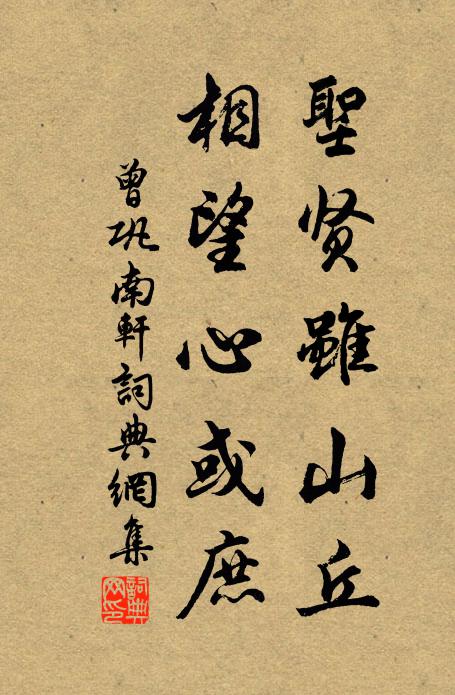 聖贤雖山丘
相望心或庶
曾巩南軒詞典網集
詞典网印